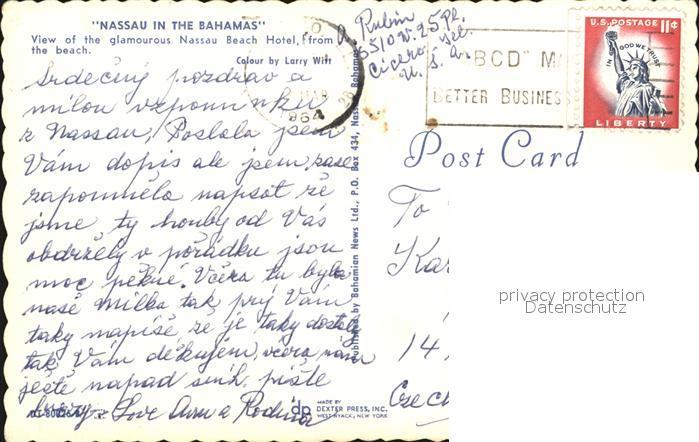 "NASSAU IN THE BAHAMAS"
View of the glamourous Nassau Beach Hotel, from
the beach.
Colour by Larry Witt
Srdečný pozdrav a
milou vzpomínku
z Nassau, Poslala jsem
Vám dopis ale jsem zase
zapomněla napsat že
jsme ty houby od Vás
obdržely v pořádku jsou
moc pěkné. Včera tu byla
naše Milka tak prý Vám
taky napíše že je taky dostaly
tak Vám děkujem, včera nám
ještě napad sníh. pište
brzy. Love Anna a Rodina
DEXTER PRESS, INC.
WEST NYACK, NEW YORK
MADE BY
dp
Published by Bahamian News Ltd., P.O. Box 434, Nassau, Bahamas
A. Rubin
5510 W. 25 Pl.
Cicero Ill.
U. S. A.
MAR
1964
"ABCD" M
BETTER BUSINESS
U.S. POSTAGE 11¢
IN GOD WE TRUST
LIBERTY
Post Card
To
Ka
14
Czech
privacy protection
Datenschutz